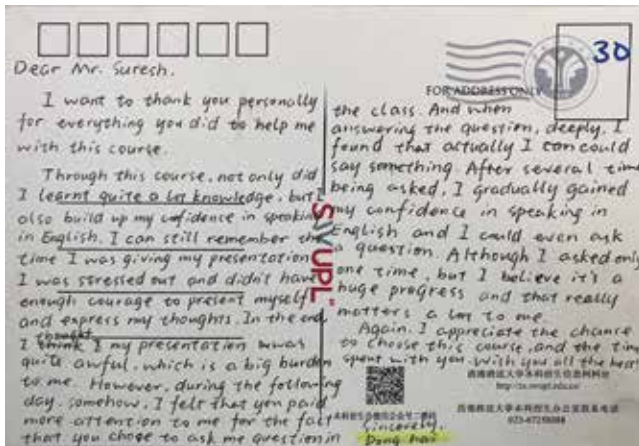 30
Dear Mr. Suresh.
FOR ADDRESS ONLY
I want to thank you personally
for everything you did to help me
with this course.
Through this course, not only did
I learnt quite a lot knowledge, but I
also build up my confidence in speaking
in English. I can still remember the
time I was giving my presentation
I was stressed out and didn't have
enough courage to present myself
and express my thoughts. In the end
thought
I think I my presentation was
quite awful, which is a big burden
to me. However, during the following
day, somehow, I felt that you paid
more attention to me for the fact
that you chose to ask me question in
SWUPL
the class. And when
answering the question, deeply, I
found that actually I can could
say something. After several time
being asked, I gradually gained
my confidence in speaking in
English and I could even ask
a question. Although I asked only
one time, but I believe it's a
huge progress and that really
matters a lot to me.
Again, I appreciate the chance
to choose this course, and the time
spent with you. Wish you all the best
Sincerely,
Dong hai
西南政法大学本科招生信息网网址
西南政法大学本科招生办公室联系电话